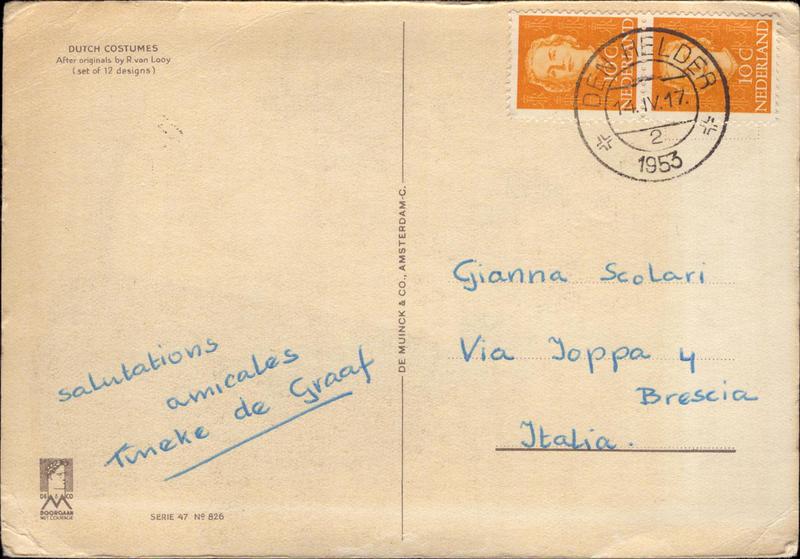 DUTCH COSTUMES
After originals by R. van Looy
(set of 12 designs)
10 C
NEDERLAND
10 C
NEDERLAND
DEN HELDER
14.IV.17.
2
1953
DE MUINCK & CO., AMSTERDAM-C.
Gianna Scolari
Via Joppa 4
Brescia
Italia.
salutations
amicales
Tineke de Graaf
DE & CO
M
DOORGAAN
MET COURAGE
SERIE 47 No 826